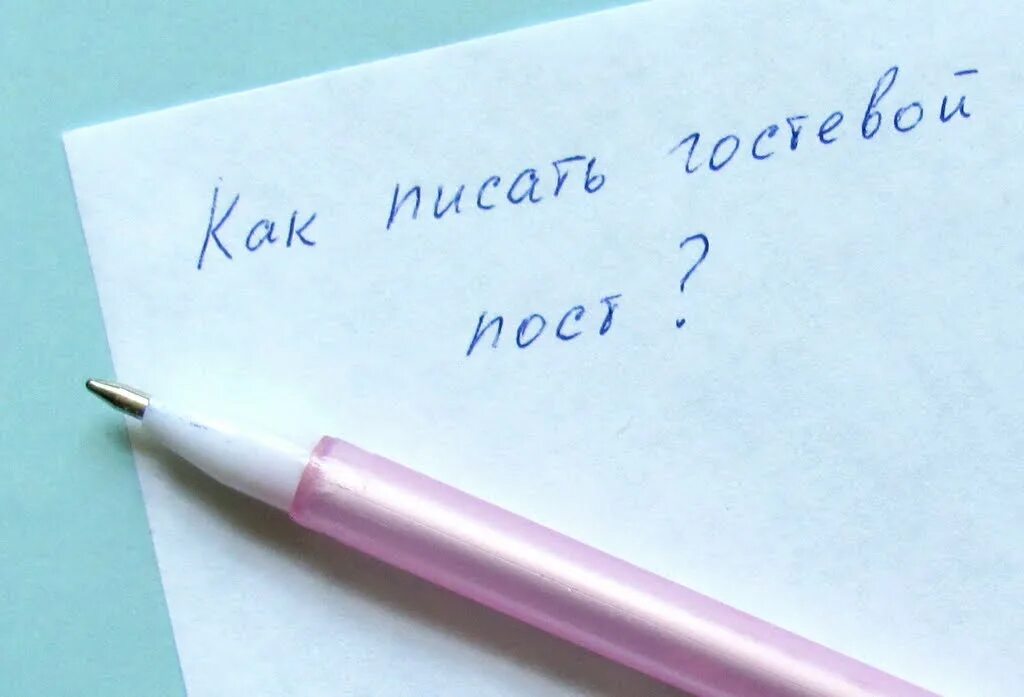 Как писать гостевой
пост?